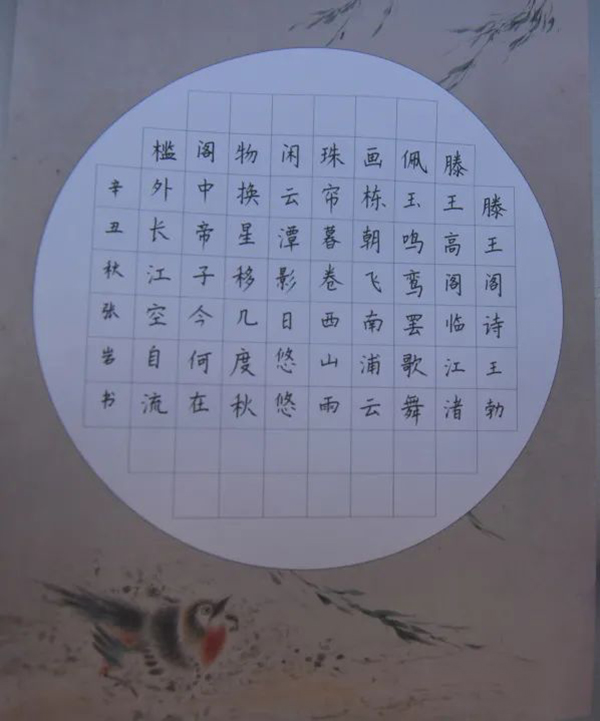 滕王阁诗王勃
滕王高阁临江渚
佩玉鸣鸾罢歌舞
画栋朝飞南浦云
珠帘暮卷西山雨
闲云潭影日悠悠
物换星移几度秋
阁中帝子今何在
槛外长江空自流
辛丑秋张岩书